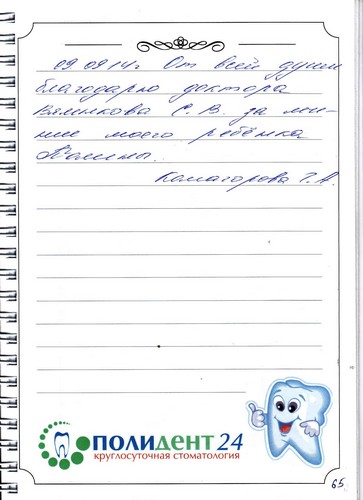 09.09.14г От всей души
благодарю доктора
Вяликова С. В. за лече-
ние моего ребёнка
Полины.
Комагорова Т. А.
ПОЛИДЕНТ 24
круглосуточная стоматология
65